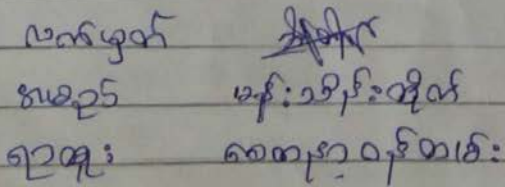 လက်မှတ်
အမည် မန်းသိန်းတိုက်
ရာထူး စေတနာ့ဝန်ထမ်း